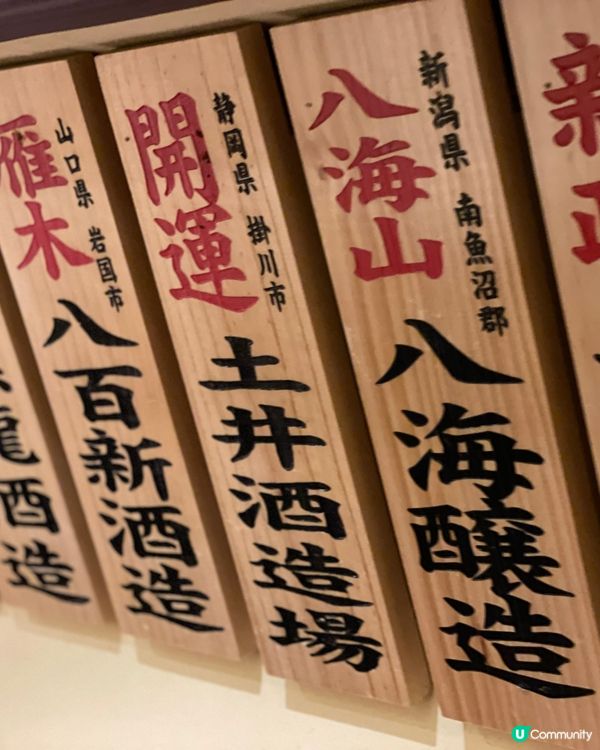 新
八海山
新潟県 南魚沼郡
八海醸造
開運
静岡県 掛川市
土井酒造場
雁木
山口県 岩国市
八百新酒造
龍酒造
U Community